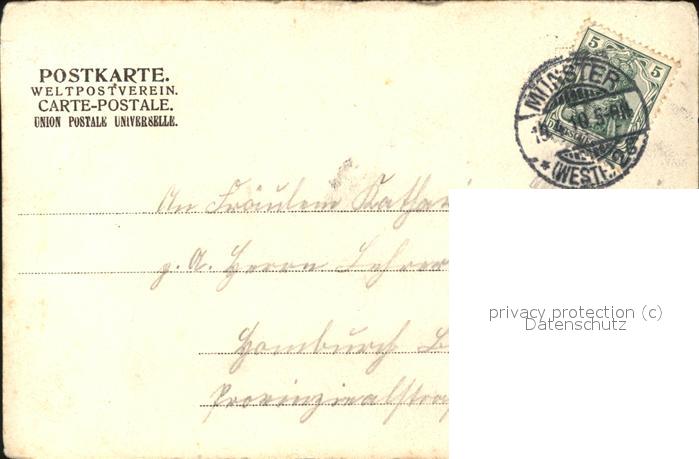 POSTKARTE.
WELTPOSTVEREIN.
CARTE-POSTALE.
UNION POSTALE UNIVERSELLE.
5 5
MÜNSTER
(WESTF.)
An Fräulein
z. A. Herrn Lehrer
Homburch
Provinzialstra
privacy protection (c)
Datenschutz